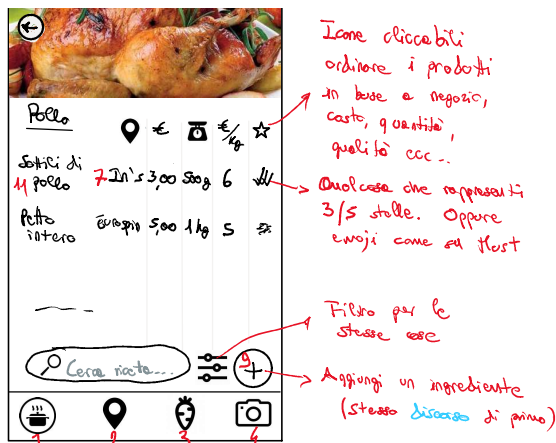 Pollo
€
€/kg
Sottili di
11 pollo
7 In's 3,00 500g 6
Petto
intero
Eurospin 5,00 1 kg 5
Cerca ricetta...
9
1
2
3
4
Icone cliccabili
ordinare i prodotti
in base a negozio,
costo, quantità,
qualità ecc...
Qualcosa che rappresenti
3/5 stelle. Oppure
emoji come su Must
Filtro per le
stesse cose
Aggiungi un ingrediente
(stesso discorso di primo)